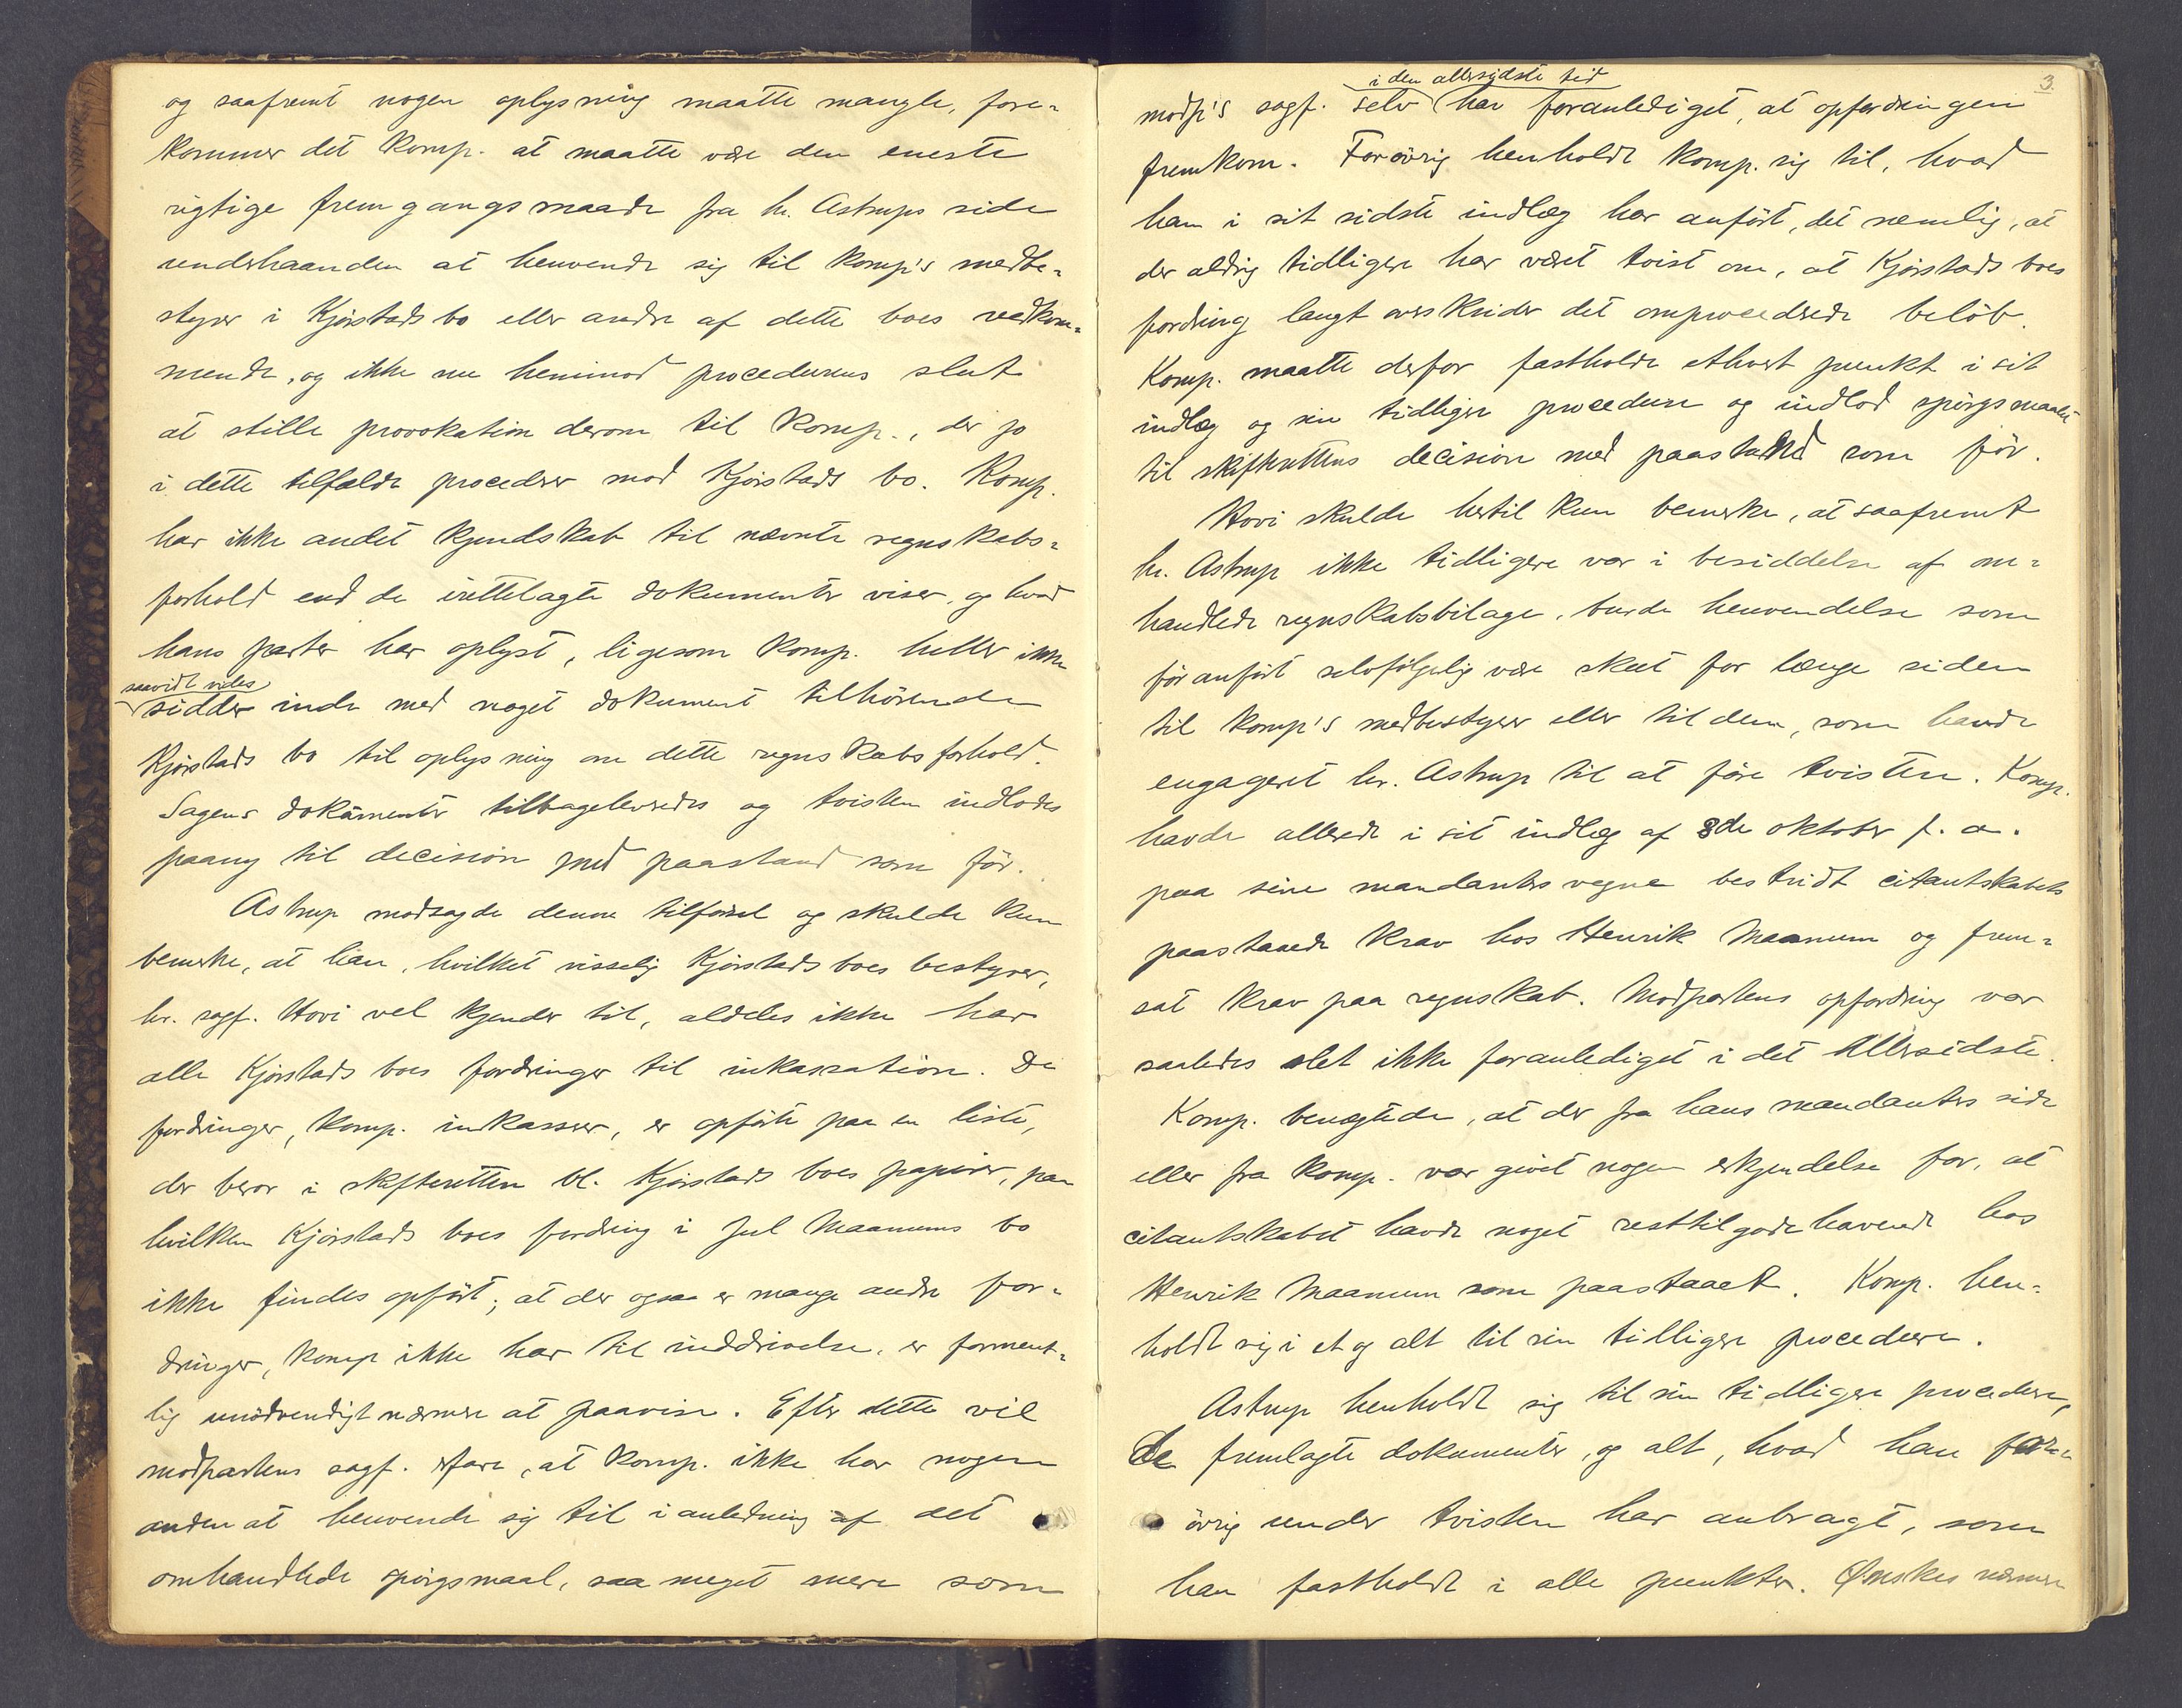 og saafremt nogen oplysning maatte mangle, fore-
kommer det komp. at maatte være den eneste
rigtige fremgangsmaade fra hr. Astrups side
underhaanden at henvende sig til komp's medbe-
styrer i Kjørstads bo eller andre af dette boes vedkom-
mende, og ikke nu henimod procedurens slut
at stille provokation derom til komp., der jo
i dette tilfælde procederer mod Kjørstads bo. Komp.
har ikke andet kjendskab til nævnte regnskabs-
forhold end de irettelagte dokumenter viser, og hvad
hans parter har oplyst, ligesom komp. heller ikke
saavidt vides
sidder inde med noget dokument tilhørende
Kjørstads bo til oplysning om dette regnskabsforhold.
Sagens dokumenter tilbageleveredes og tvisten indlodes
paany til decision med paastand som før.
Astrup modsagde denne tilførsel og skulde kun
bemerke, at han, hvilket visselig Kjørstads boes bestyrer,
hr. sagf. Hovi vel kjender til, aldeles ikke har
alle Kjørstads boes fordringer til inkassation. De
fordringer, komp. inkasserer, er opførte paa en liste,
der beror i skifteretten bl. Kjørstads boes papirer, paa
hvilken Kjørstads boes fordring i Jul Maanums bo
ikke findes opført; at der ogsaa er mange andre for-
dringer, komp ikke har til inddrivelse, er forment-
lig unødvendigt nærmere at paavise. Efter dette vil
modpartens sagf. erfare, at komp. ikke har nogen
anden at henvende sig til i anledning af det
omhandlede spørgsmaal, saa meget mere som
3.
i den allersidste tid
modp's sagf. selv har foranlediget, at opfordringen
fremkom. Forøvrig henholdt komp. sig til, hvad
han i sit sidste indlæg har anført, det nemlig, at
der aldrig tidligere har været tvist om, at Kjørstads boes
fordring langt overskrider det omprocederede beløb.
Komp. maatte derfor fastholde ethvert punkt i sit
indlæg og sin tidligere procedure og indlod spørgsmaalet
til skifterettens decision med paastand som før.
Hovi skulde hertil kun bemerke, at saafremt
hr. Astrup ikke tidligere var i besiddelse af om-
handlede regnskabsbilage, burde henvendelse som
før anført selvfølgelig være skeet for længe siden
til komp's medbestyrer eller til dem, som havde
engageret hr. Astrup til at føre tvisten. Komp.
havde allerede i sit indlæg af 8de oktober f. a.
paa sine mandanters vegne bestridt citantskabets
paastaaede krav hos Henrik Maanum og frem-
sat krav paa regnskab. Modpartens opfordring var
saaledes slet ikke foranlediget i det allersidste.
Komp. benegtede, at der fra hans mandanters side
eller fra komp. var givet nogen erkjendelse for, at
citantskabet havde noget resttilgodehavende hos
Henrik Maanum som paastaaet. Komp. hen-
holdt sig i et og alt til sin tidligere procedure.
Astrup henholdt sig til sin tidligere procedure,
de fremlagte dokumenter, og alt, hvad han for-
øvrig under tvisten har anbragt, som
han fastholdt i alle punkter. Ønskes nærmere